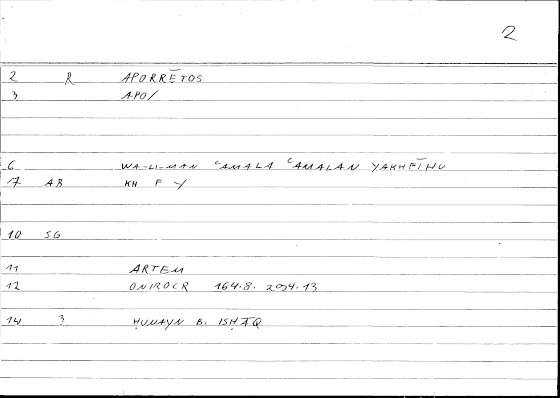 2
2 R APORRĒTOS
3 APO/
6 WA-LI-MAN ʿAMALA ʿAMALAN YAKHFĪHU
7 AB KH F Y
10 SG
11 ARTEM
12 ONIROCR 164.8. 294.13
14 3 ḤUNAYN B. ISḤĀQ